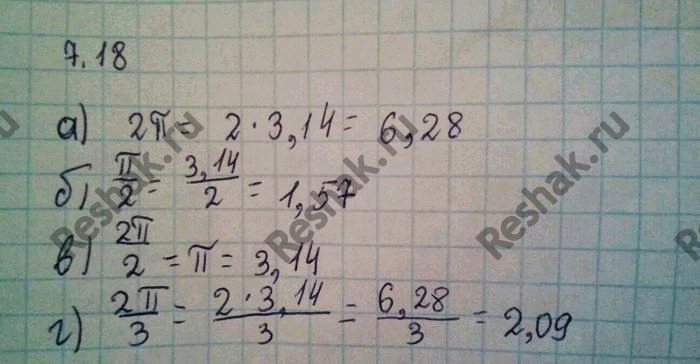 7.18
а) 2π = 2 · 3,14 = 6,28
б) π/2 = 3,14/2 = 1,57
в) 2π/2 = π = 3,14
г) 2π/3 = 2 · 3,14/3 = 6,28/3 = 2,09
Reshak.ru
Reshak.ru
Reshak.ru